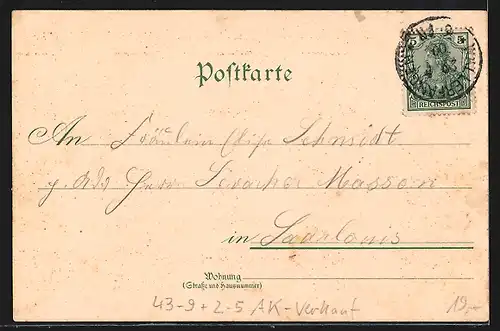 5 5
REICHSPOST
Postkarte
An Fräulein Elise Schmidt
p. Adr. Herrn Masson
in Saarlouis
Wohnung
(Straße und Hausnummer)
43-9+2-5 AK-Verkauf
19,-